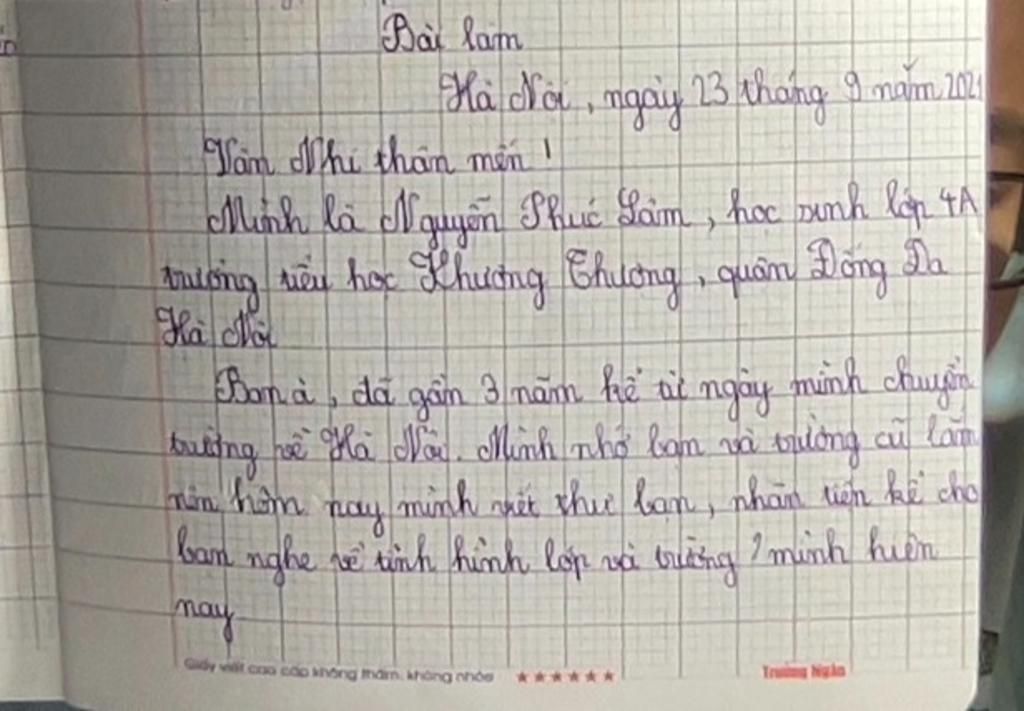 Bài làm
Hà Nội, ngày 23 tháng 9 năm 2021
Vân Nhi thân mến !
Mình là Nguyễn Phúc Lâm, học sinh lớp 4A
trường tiểu học Khương Thượng, quận Đống Đa
Hà Nội
Bạn à, đã gần 3 năm kể từ ngày mình chuyển
trường về Hà Nội. Mình nhớ bạn và trường cũ lắm
nên hôm nay mình viết thư bạn, nhân tiện kể cho
bạn nghe về tình hình lớp và trường mình hiện
nay
Giấy viết cao cấp không thấm, không nhòe
Trường Ngân